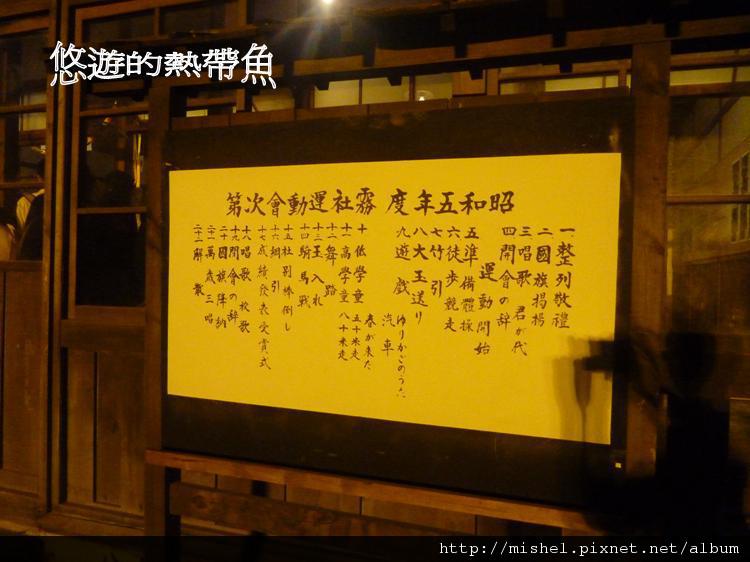 悠遊的熱帶魚
昭和五年度 霧社運動會次第
一 整列敬禮
二 國旗揭揚
三 唱歌 君が代
四 開會の辞
運動開始
五 準備體操
六 徒步競走
七 竹引
八 大玉送り
九 遊戲 ゆりかごのうた
汽車
春が来た
十 低學童 五十米走
十一 高學童 八十米走
十二 舞踏
十三 玉入れ
十四 騎馬戰
十五 社別棒倒し
十六 綱引
十七 成績發表受賞式
十八 唱歌 校歌
十九 閉會の辞
二十 國旗降納
二十一 萬歲三唱
二十二 解散
http://mishel.pixnet.net/album